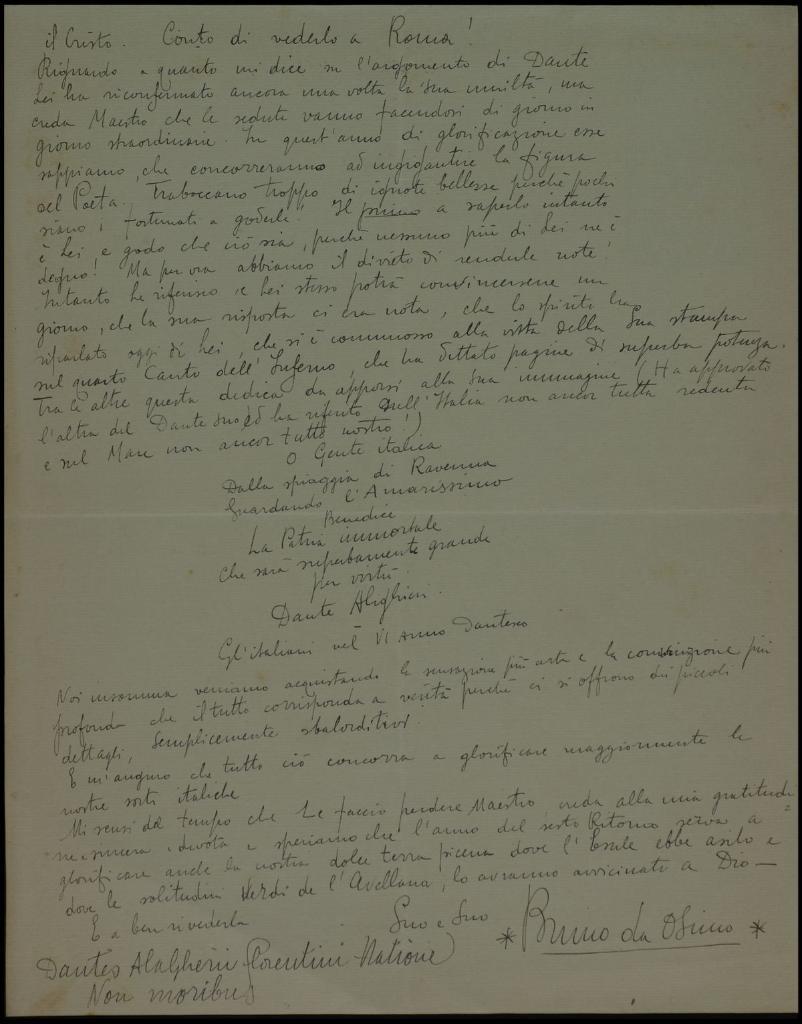 il Cristo. Conto di vederlo a Roma!
Riguardo a quanto mi dice su l'argomento di Dante
Lei ha riconfermato ancora una volta la sua umiltà, ma
creda Maestro che le sedute vanno facendosi di giorno in
giorno straordinarie. In quest'anno di glorificazione esse
sappiamo, che concorreranno ad ingigantire la figura
del Poeta. Traboccano troppo di ignote bellesse perchè pochi
siano i fortunati a goderle! Il primo a saperlo intanto
è Lei e godo che ciò sia, perchè nessuno più di Lei ne è
degno! Ma per ora abbiamo il divieto di renderle note!
Intanto le riferisco e Lei stesso potrà convincersene un
giorno, che la sua risposta ci era nota, che lo spirito ha
riparlato oggi di Lei, che si è commosso alla vista della Sua stampa
sul quarto Canto dell'Inferno, che ha dettato pagine di superba potenza.
Tra le altre questa dedica da apporsi alla sua immagine (Ha approvato
l'altra del Dante suo ed ha riferito sull'Italia non ancor tutta redenta
e sul Mare non ancor tutto nostro!)
O Gente italica
Dalla spiaggia di Ravenna
Guardando l'Amarissimo
Benedice
La Patria immortale
che sarà superbamente grande
per virtù
Dante Alighieri.
Gl'italiani nel VI Anno Dantesco
Noi insomma veniamo acquistando la sensazione più certa e la convinzione più
profonda che il tutto corrisponda a verità perchè ci si offrono dei piccoli
dettagli, semplicemente sbalorditivi.
E m'auguro che tutto ciò concorra a glorificare maggiormente le
nostre sorti italiche
Mi scusi del tempo che Le faccio perdere Maestro, creda alla mia gratitudi
ne sincera e devota e speriamo che l'anno del sesto Ritorno serva a
glorificare anche la nostra dolce terra picena dove l'Esule ebbe asilo e
dove le solitudini Verdi de l'Avellana, lo avranno avvicinato a Dio —
E a ben rivederla
Suo e Suo
* Bruno da Osimo *
Dantes Alagherii (Florentini Natione)
Non moribus